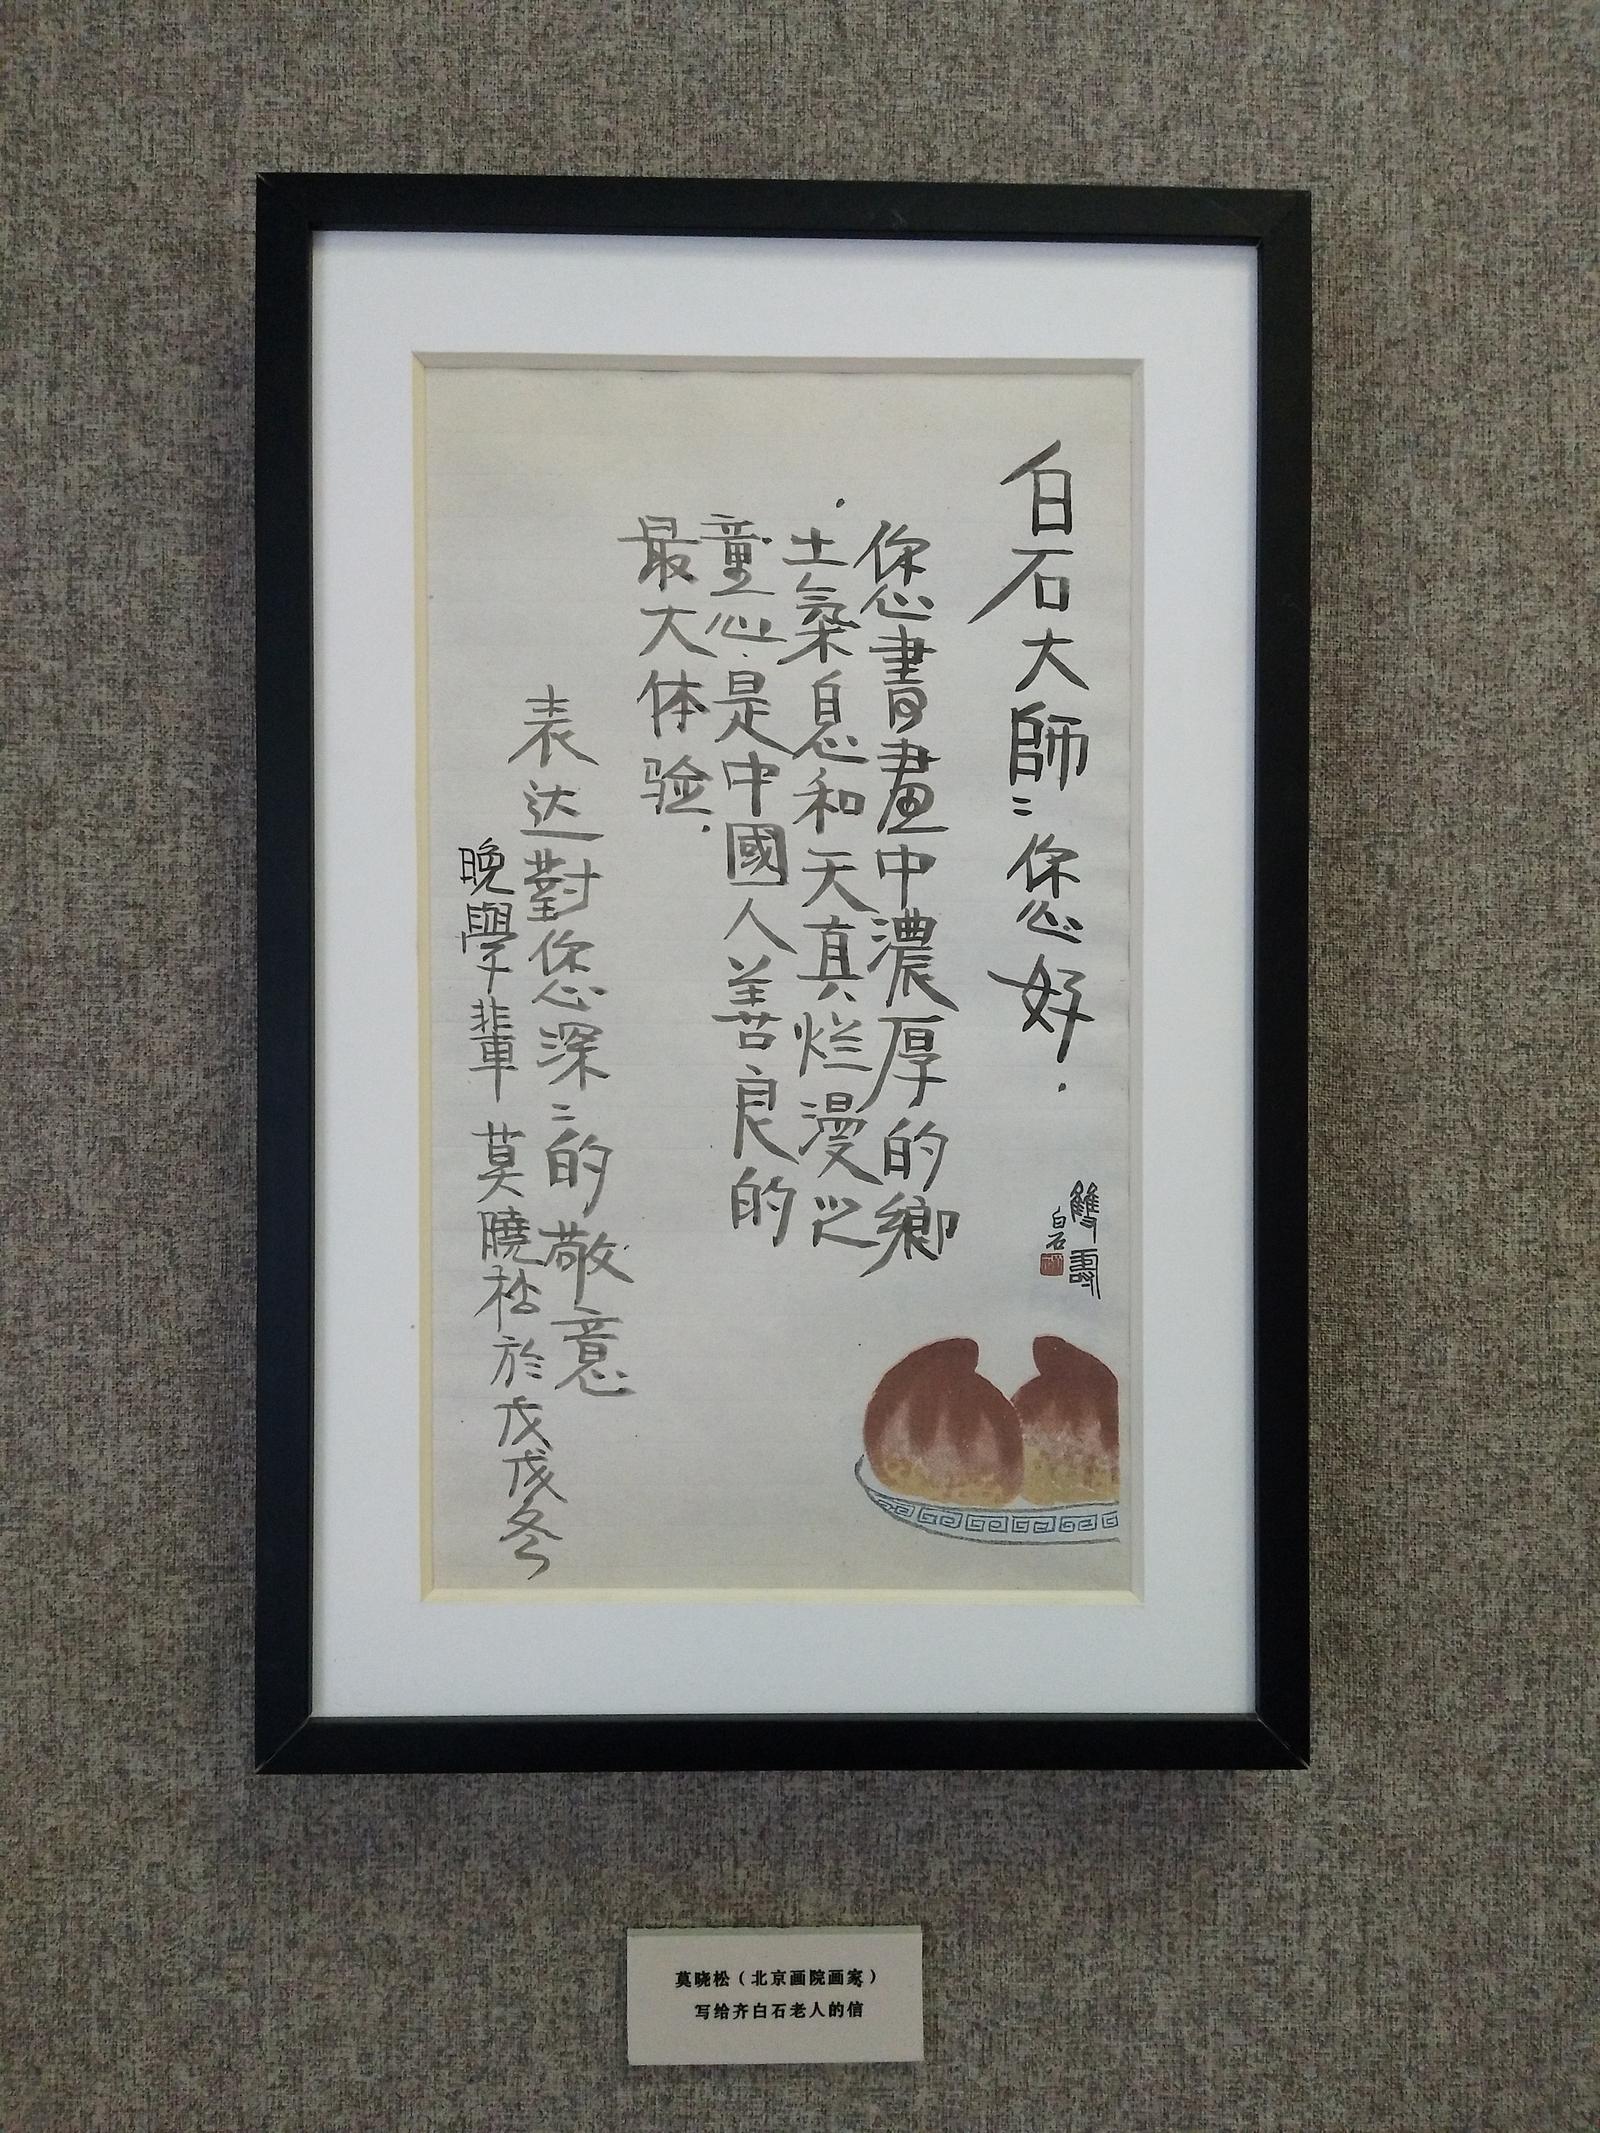 白石大師：您好．
您書畫中濃厚的鄉
土氣息和天真烂漫之
童心．是中國人善良的
最大体验．
表达對您深〻的敬意
晚學輩 莫曉松於戊戌冬
雙壽
白石
莫晓松（北京画院画家）
写给齐白石老人的信